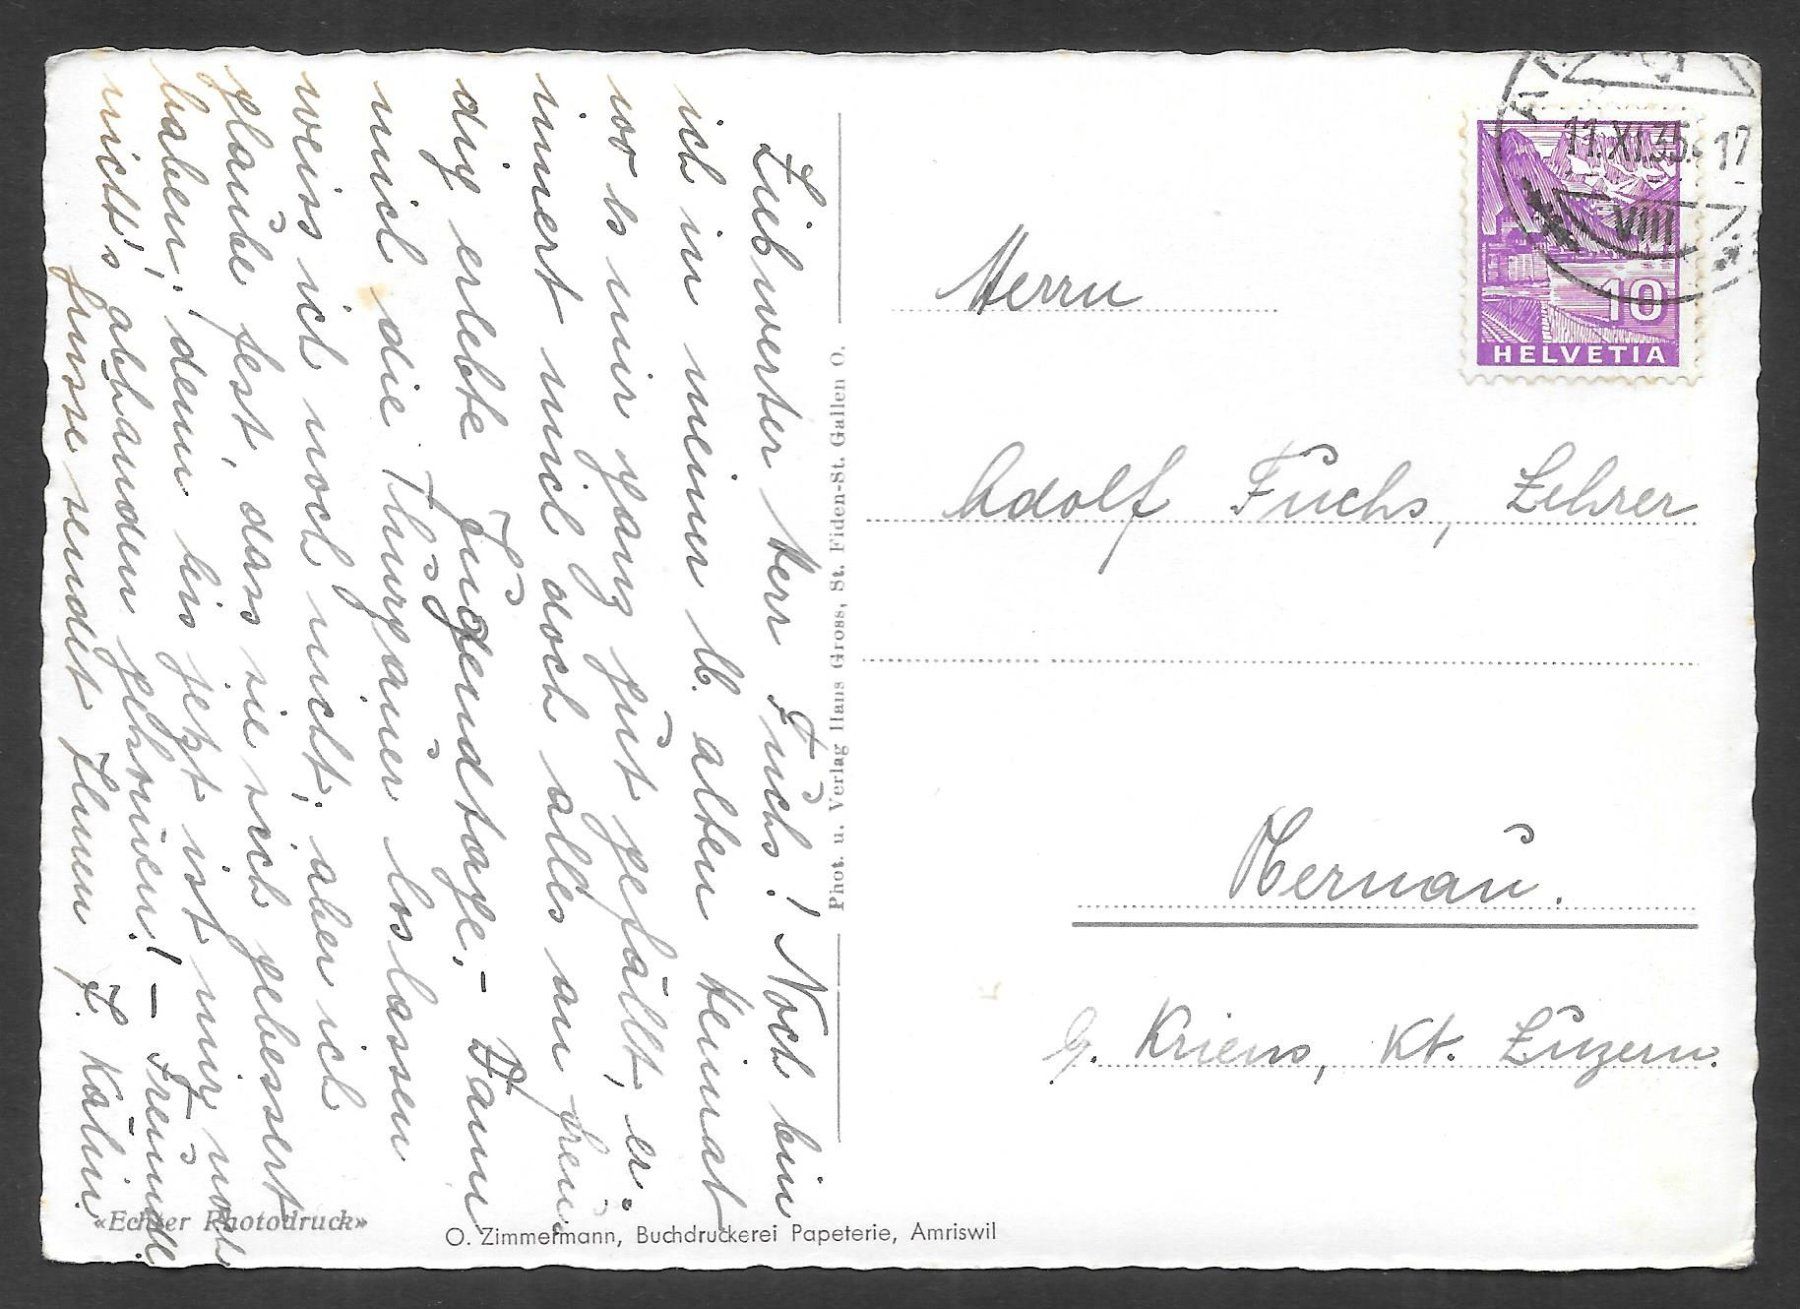 Liebwerter Herr Fuchs! Noch bin
ich in meiner lb. alten Heimat
wo es mir ganz gut gefällt, er-
innert mich doch alles an freu-
dig erlebte Jugendtage.- Wann
mich die Thurgauer loslassen
weiss ich noch nicht; aber ich
glaube fest, dass sie sich gebessert
haben; denn bis jetzt ist mir noch
nicht's abhanden gekommen! - Freundl.
Grüsse sendet Ihnen J. Kälin.
«Echter Photodruck»
O. Zimmermann, Buchdruckerei Papeterie, Amriswil
Phot. u. Verlag Hans Gross, St. Fiden-St. Gallen O.
11.XI.35. 17
VIII
10
HELVETIA
Herrn
Adolf Fuchs, Lehrer
Hernau.
b. Kriens, Kt. Luzern.